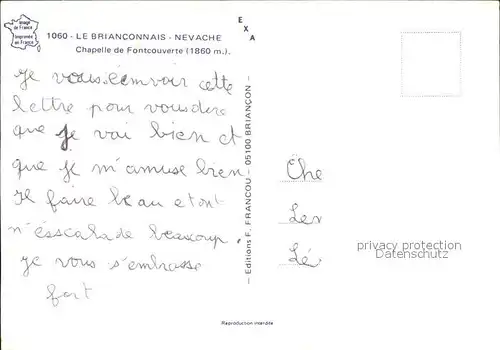 Image
de France
Imprimée
en France
1060 - LE BRIANÇONNAIS - NEVACHE
Chapelle de Fontcouverte (1860 m.).
E
X
A
je vous écmvoir cette
lettre pour vous dere
que je vai bien et
que je m'amuse bien
il faire beau etont
n'ésscalade beaucoup.
je vous s'embrasse
fort
— Editions F. FRANCOU - 05100 BRIANÇON —
Che
Ler
Lé
privacy protection
DELCAMPE
Reproduction interdite